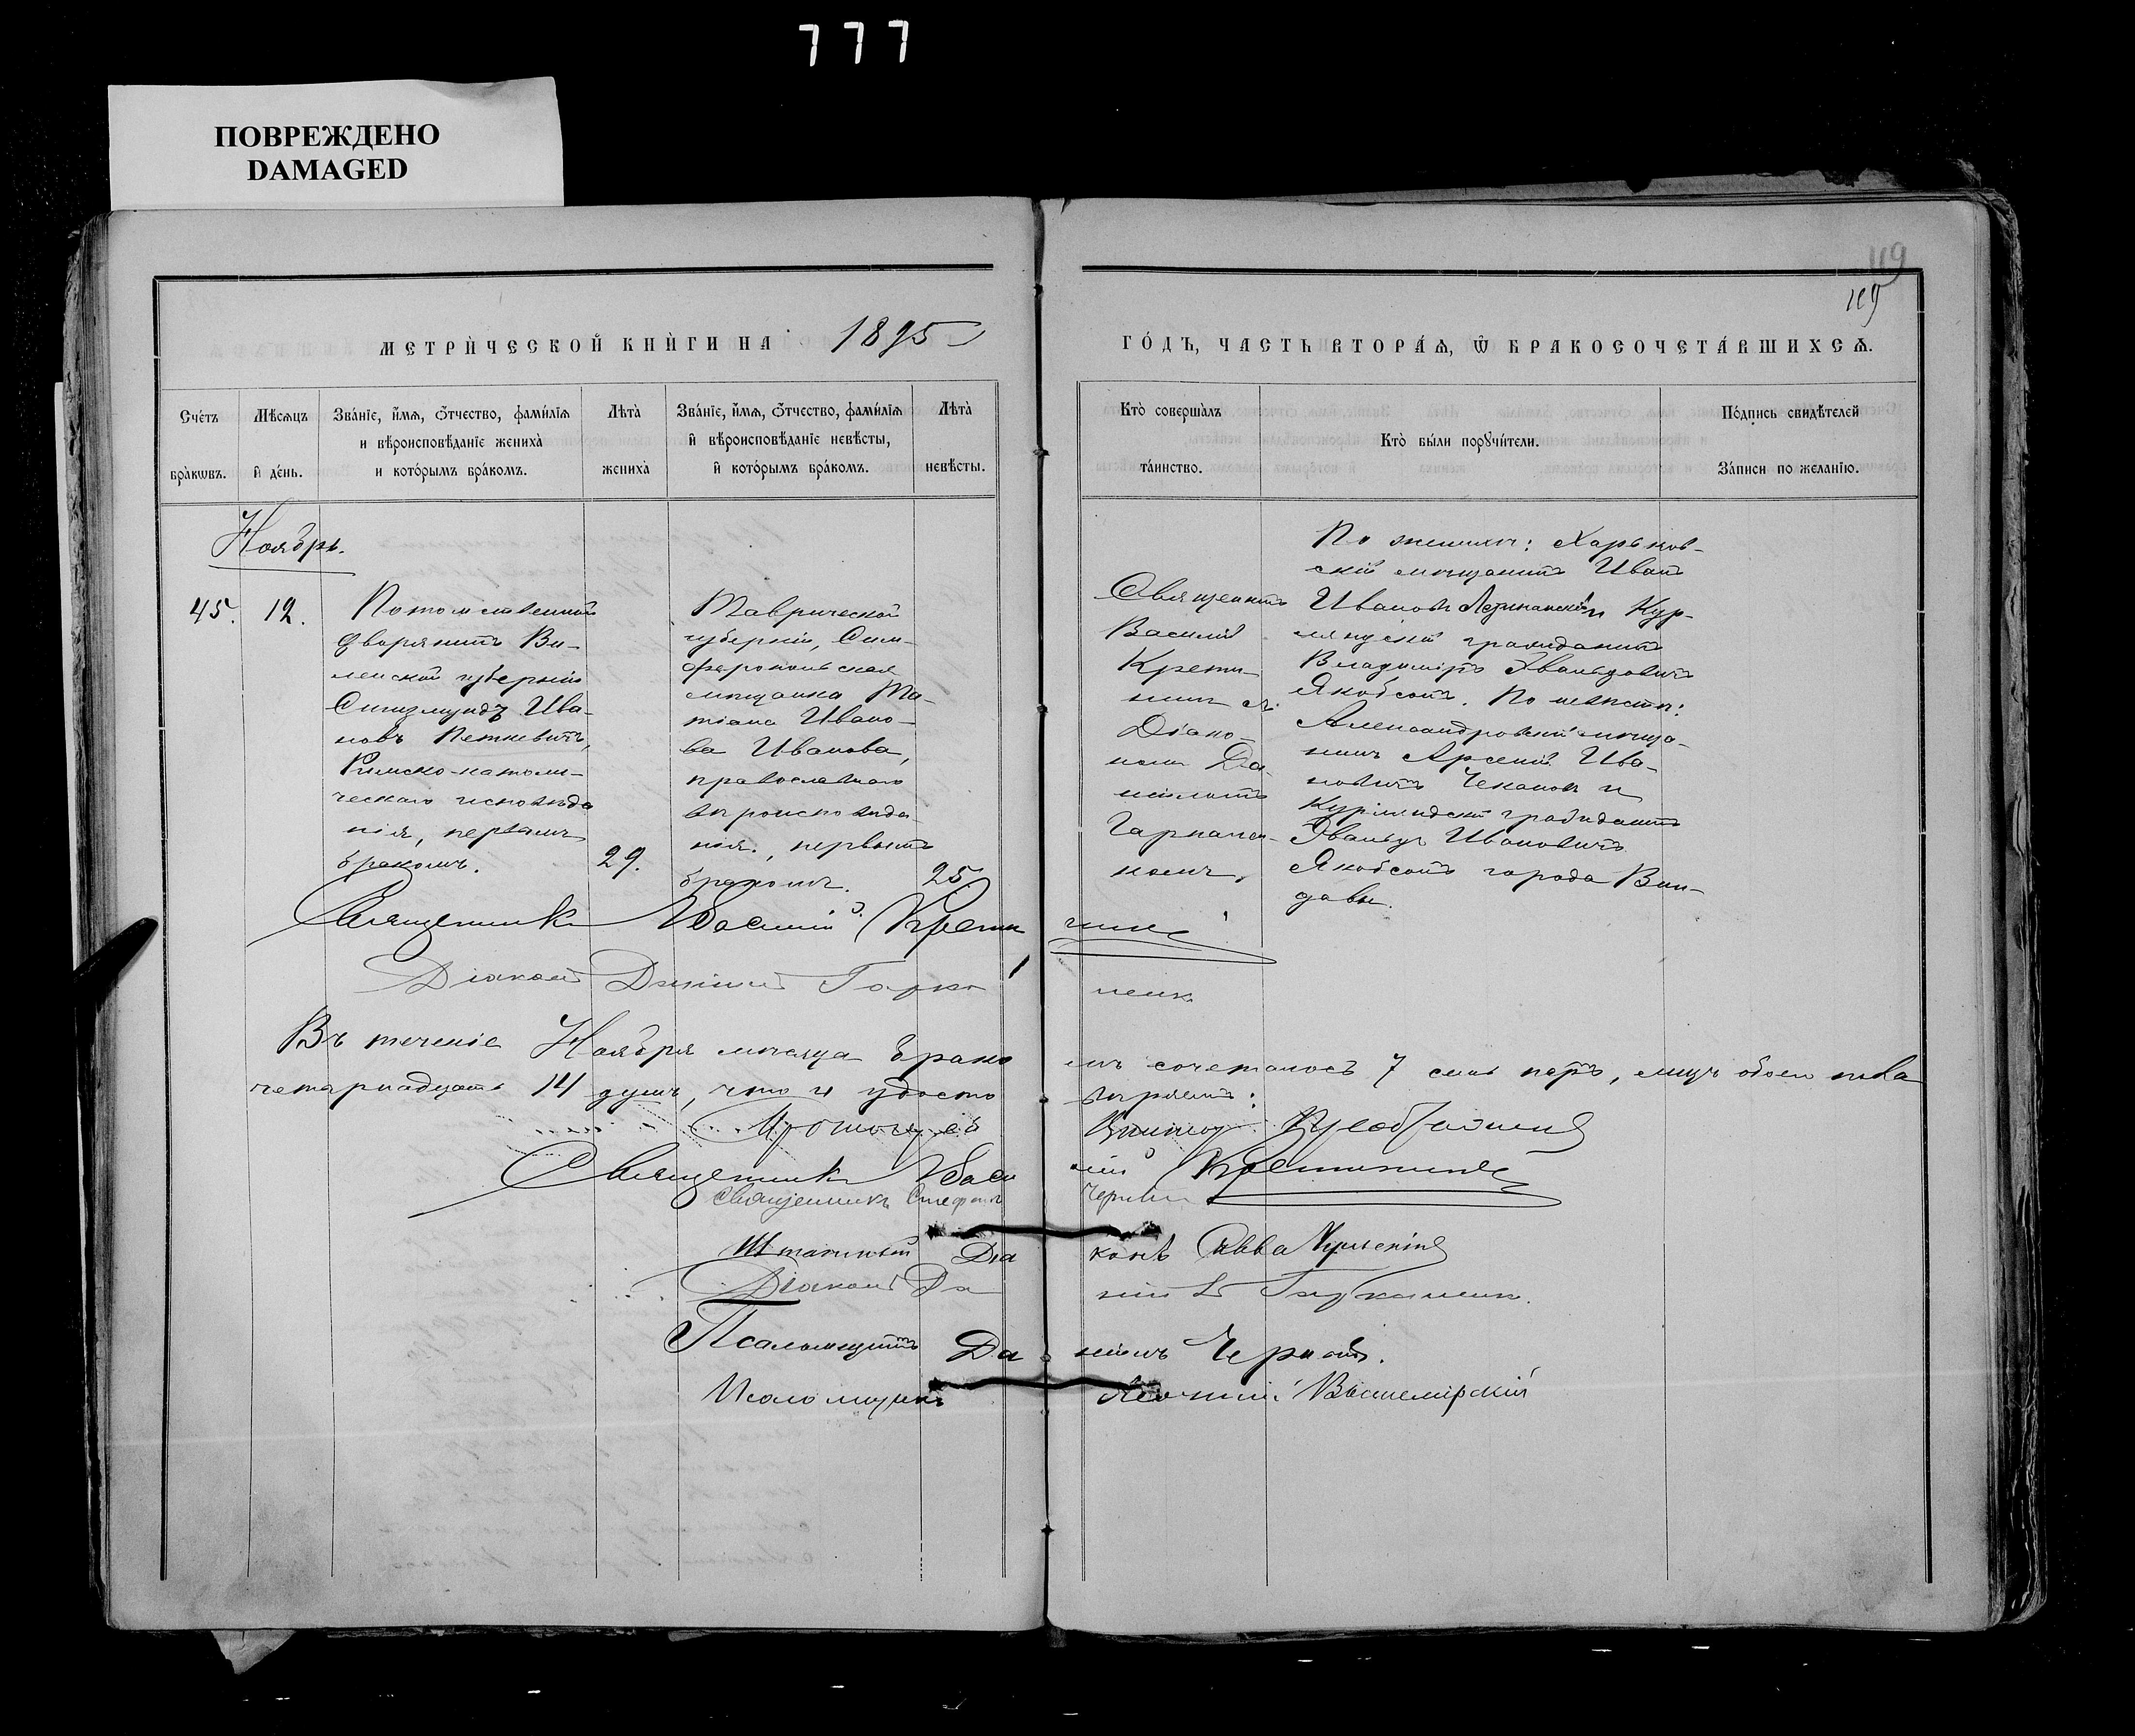 777
ПОВРЕЖДЕНО
DAMAGED
119
119
МЕТРИ́ЧЕСКОЙ КНИ́ГИ НА 1895
ГО́ДЪ, ЧАСТЬ ВТОРА́Ѧ, Ѽ БРАКОСОЧЕТА́ВШИХСѦ.
Сче́тъ бра̀кѡвъ.
Мѣ́сѧцъ и҆ де́нь.
Зва́нїе, и҆́мѧ, ѻ҆́тчество, фами́лїѧ
и вѣроисповѣ́данїе жениха̀
и кото́рымъ бра́комъ.
Лѣта̀ жениха̀
Зва́нїе, и҆́мѧ, ѻ҆́тчество, фами́лїѧ
и҆ вѣроисповѣ́данїе невѣ́сты,
и҆ кото́рымъ бра́комъ.
Лѣта̀ невѣ́сты.
Кто̀ соверша̀лъ та́инство.
Кто̀ бы́ли порꙋчи́тели.
По́дпись свидѣ́телей
За́писи по жела́нїю.
Ноябрь.
45. 12.
Потомственный
дворянинъ Ви-
ленской губерніи
Сигизмундъ Ива-
новъ Петкевичъ,
Римско-католи-
ческаго исповѣда
нія, первымъ
бракомъ.
29.
Таврической
губерніи, Сим-
феропольская
мѣщанка Та-
тіана Ивано-
ва Иванова,
православнаго
вѣроисповѣда-
нія, первымъ
бракомъ.
25.
Священникъ
Василій
Крети-
нинъ съ
Діако-
номъ Да-
ніиломъ
Гаркаген-
комъ.
По женихѣ: Харьков-
скій мѣщанинъ Иванъ
Ивановъ и Кур-
ляндскій гражданинъ
Владиміръ Эвальдовичъ
Якобсонъ. По невѣстѣ:
Александровскій мѣща-
нинъ Арсеній Ива-
новичъ Чекановъ и
Курляндскій гражданинъ
Эвальдъ Ивановичъ
Якобсонъ города Вин-
давы.
Священникъ Василій Кретининъ
Діаконъ Даніилъ
Въ теченіе Ноября мѣсяца бракомъ сочеталось 7 семь паръ, лицъ обоего пола
четырнадцать 14 душъ, что и удостовѣряемъ:
Протоіерей
Священникъ Василій Кретининъ
Священникъ Стефанъ
Штатный Діаконъ Савва
Діаконъ Даніилъ
Псаломщикъ Даніилъ Черновъ.
Псаломщикъ Леонтій Вышемірскій